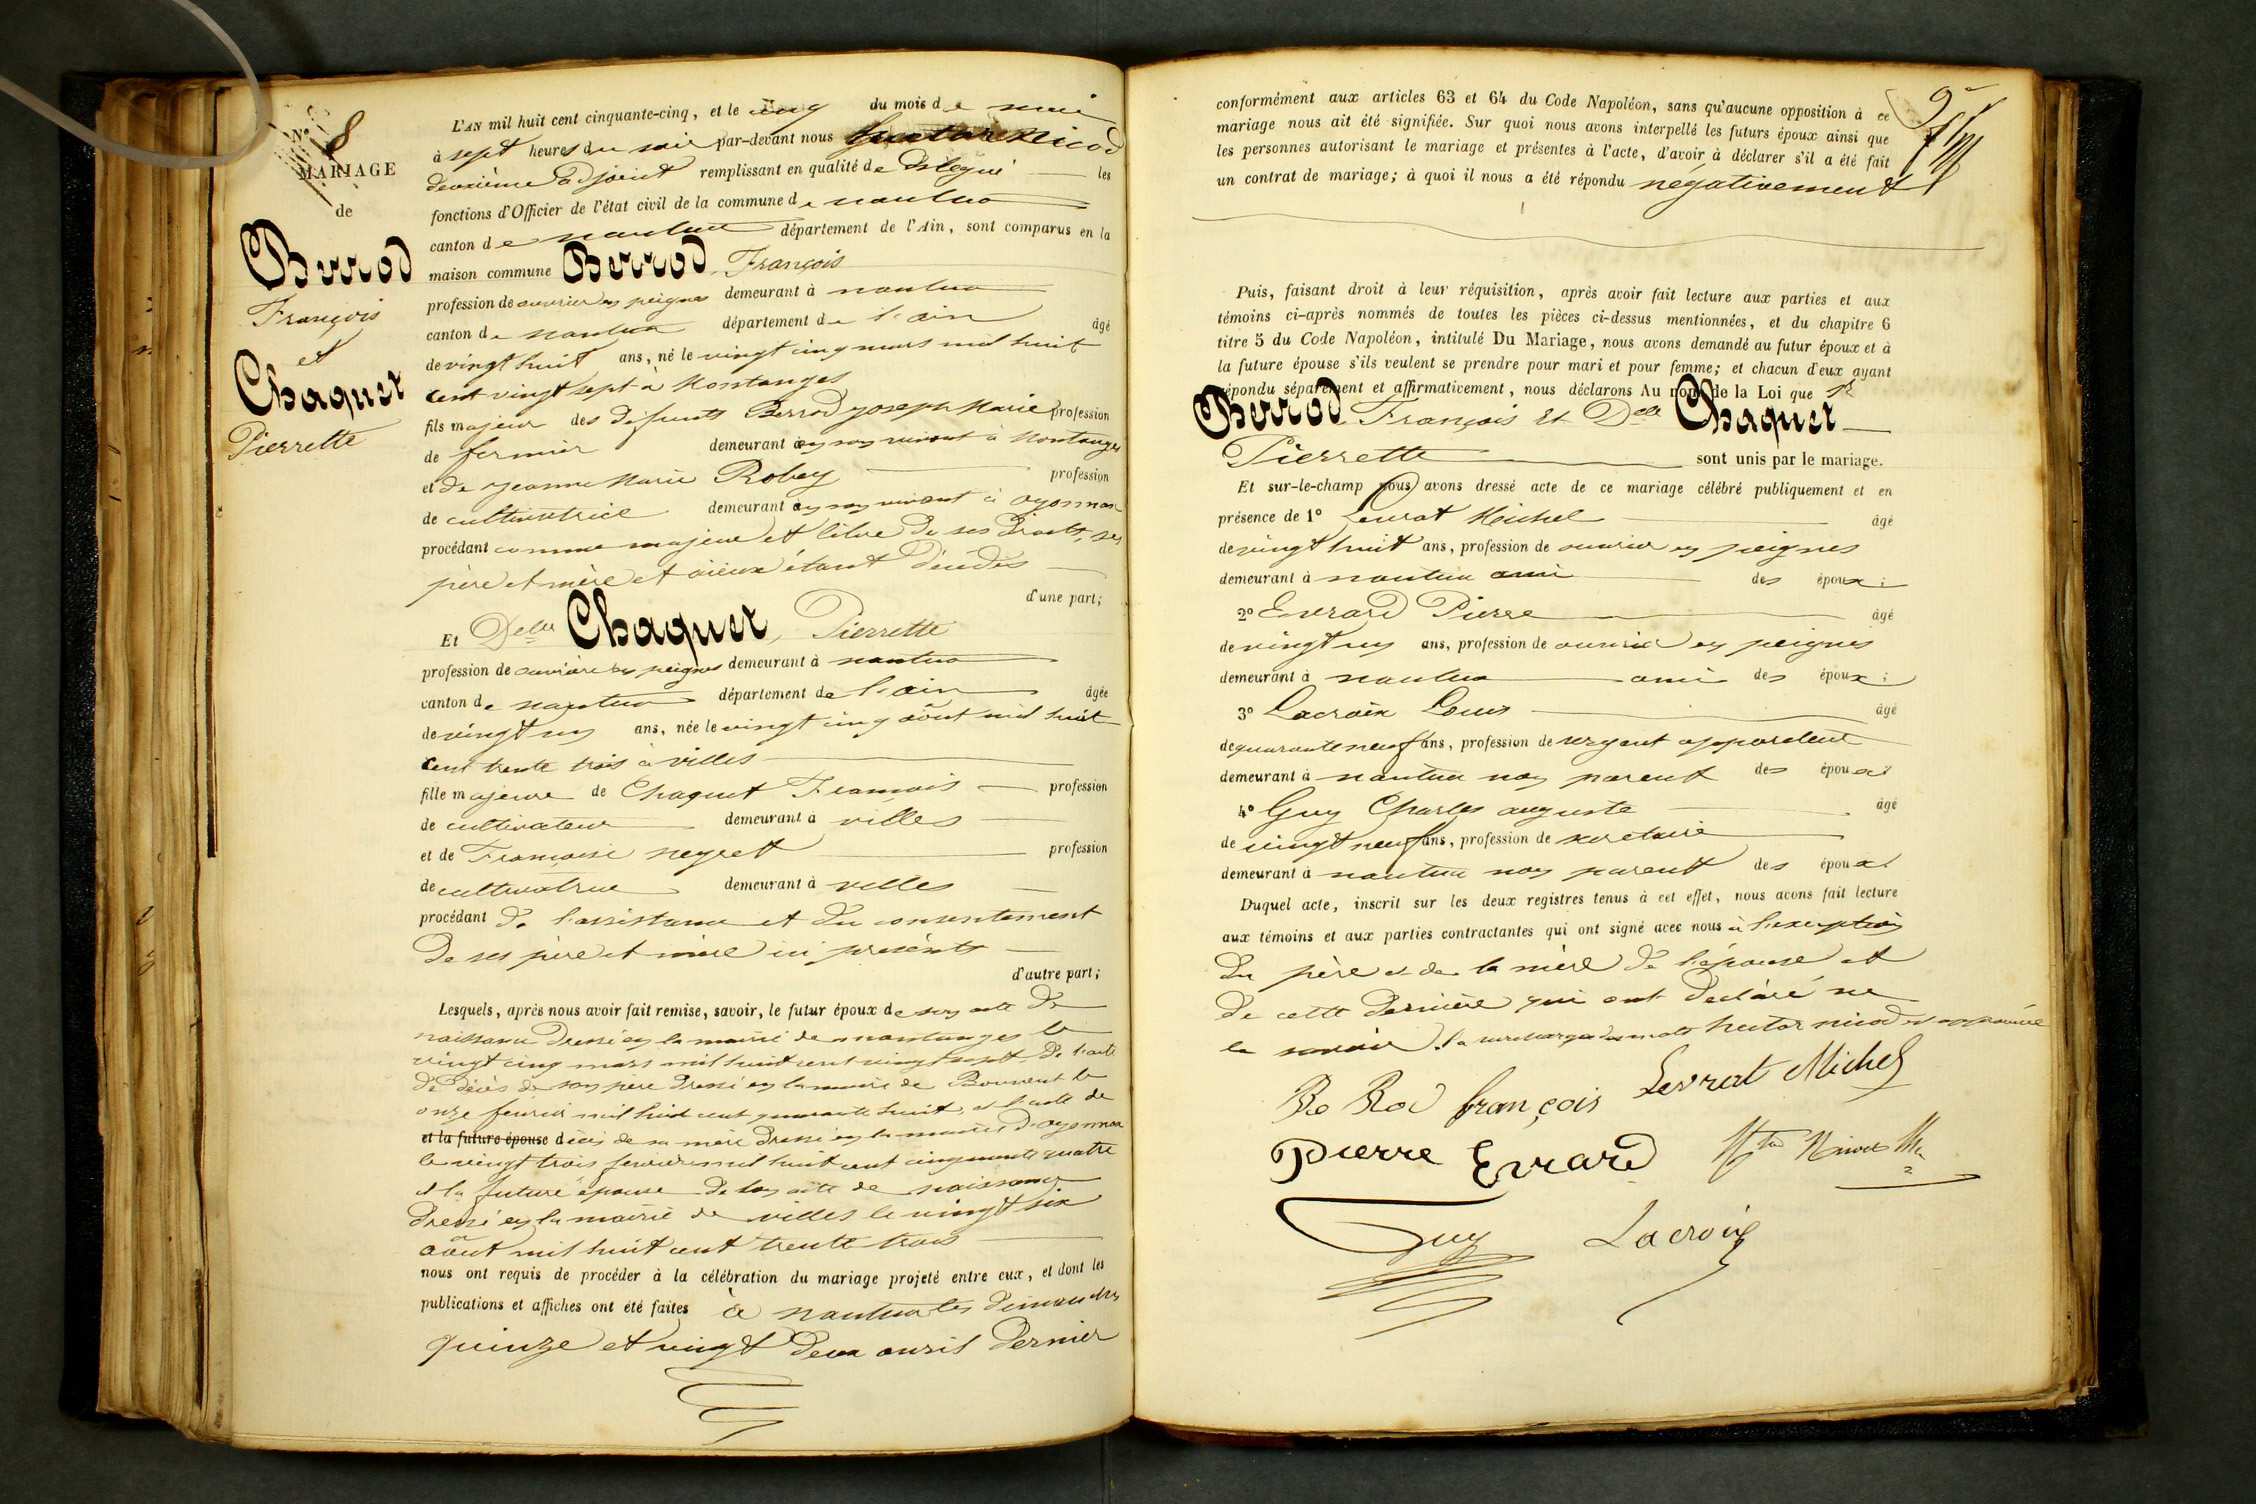 N.º 8
MARIAGE
de
Berrod
François
et
Chaquet
Pierrette
L'AN mil huit cent cinquante-cinq, et le cinq du mois de mai
à sept heures du soir par-devant nous hector Nicod
deuxième adjoint remplissant en qualité de Délégué les
fonctions d'Officier de l'état civil de la commune de nantua
canton de nantua département de l'Ain, sont comparus en la
maison commune Berrod, François
profession de ouvrier en peignes demeurant à nantua
canton de nantua département de l'ain âgé
de vingt huit ans, né le vingt cinq mars mil huit
cent vingt sept à Montanges
fils majeur des défunts Berrod joseph Marie profession
de fermier demeurant en son vivant à Montanges
et de jeanne Marie Robey profession
de cultivatrice demeurant en son vivant à oyonnax
procédant comme majeur et libre de ses droits, ses
père et mère et aïeux étant décédés
d'une part;
Et Delle Chaquet, Pierrette
profession de ouvrière en peignes demeurant à nantua
canton de nantua département de l'ain âgée
de vingt un ans, née le vingt cinq août mil huit
cent trente trois à villes
fille majeure de Chaquet François profession
de cultivateur demeurant à villes
et de Françoise neyret profession
de cultivatrice demeurant à villes
procédant de l'assistance et du consentement
de ses père et mère ici présents
d'autre part;
Lesquels, après nous avoir fait remise, savoir, le futur époux de son acte de
naissance dressé en la mairie de montanges le
vingt cinq mars mil huit cent vingt sept de l'acte
de décès de son père dressé en la mairie de Bouvent le
onze fevrier mil huit cent quarante huit, et l'acte de
et la future épouse décès de sa mère dressé en la mairie d'oyonnax
le vingt trois fevrier mil huit cent cinquante quatre
et la future épouse de son acte de naissance
dressé en la mairie de villes le vingt six
août mil huit cent trente trois
nous ont requis de procéder à la célébration du mariage projeté entre eux, et dont les
publications et affiches ont été faites à nantua les dimanches
quinze et vingt deux avril dernier
conformément aux articles 63 et 64 du Code Napoléon, sans qu'aucune opposition à ce
mariage nous ait été signifiée. Sur quoi nous avons interpellé les futurs époux ainsi que
les personnes autorisant le mariage et présentes à l'acte, d'avoir à déclarer s'il a été fait
un contrat de mariage; à quoi il nous a été répondu négativement
Puis, faisant droit à leur réquisition, après avoir fait lecture aux parties et aux
témoins ci-après nommés de toutes les pièces ci-dessus mentionnées, et du chapitre 6
titre 5 du Code Napoléon, intitulé Du Mariage, nous avons demandé au futur époux et à
la future épouse s'ils veulent se prendre pour mari et pour femme; et chacun d'eux ayant
répondu séparément et affirmativement, nous déclarons Au nom de la Loi que Sr
Berrod, François Et Delle Chaquet
Pierrette sont unis par le mariage.
Et sur-le-champ nous avons dressé acte de ce mariage célébré publiquement et en
présence de 1º Levrat Michel âgé
de vingt huit ans, profession de ouvrier en peignes
demeurant à nantua ami des époux;
2º Evrard Pierre âgé
de vingt un ans, profession de ouvrier en peignes
demeurant à nantua ami des époux;
3º Lacroix Louis âgé
de quarante neuf ans, profession de sergent appariteur
demeurant à nantua non parent des époux
4º Guy Charles auguste âgé
de vingt neuf ans, profession de secrétaire
demeurant à nantua non parent des époux
Duquel acte, inscrit sur les deux registres tenus à cet effet, nous avons fait lecture
aux témoins et aux parties contractantes qui ont signé avec nous à l'exception
du père et de la mère de l'épouse et
de cette dernière qui ont déclaré ne
le savoir. la surcharge des mots hector nicod est approuvée
Be Rod françois Levrat Michel
Pierre Evrard
Guy Lacroix